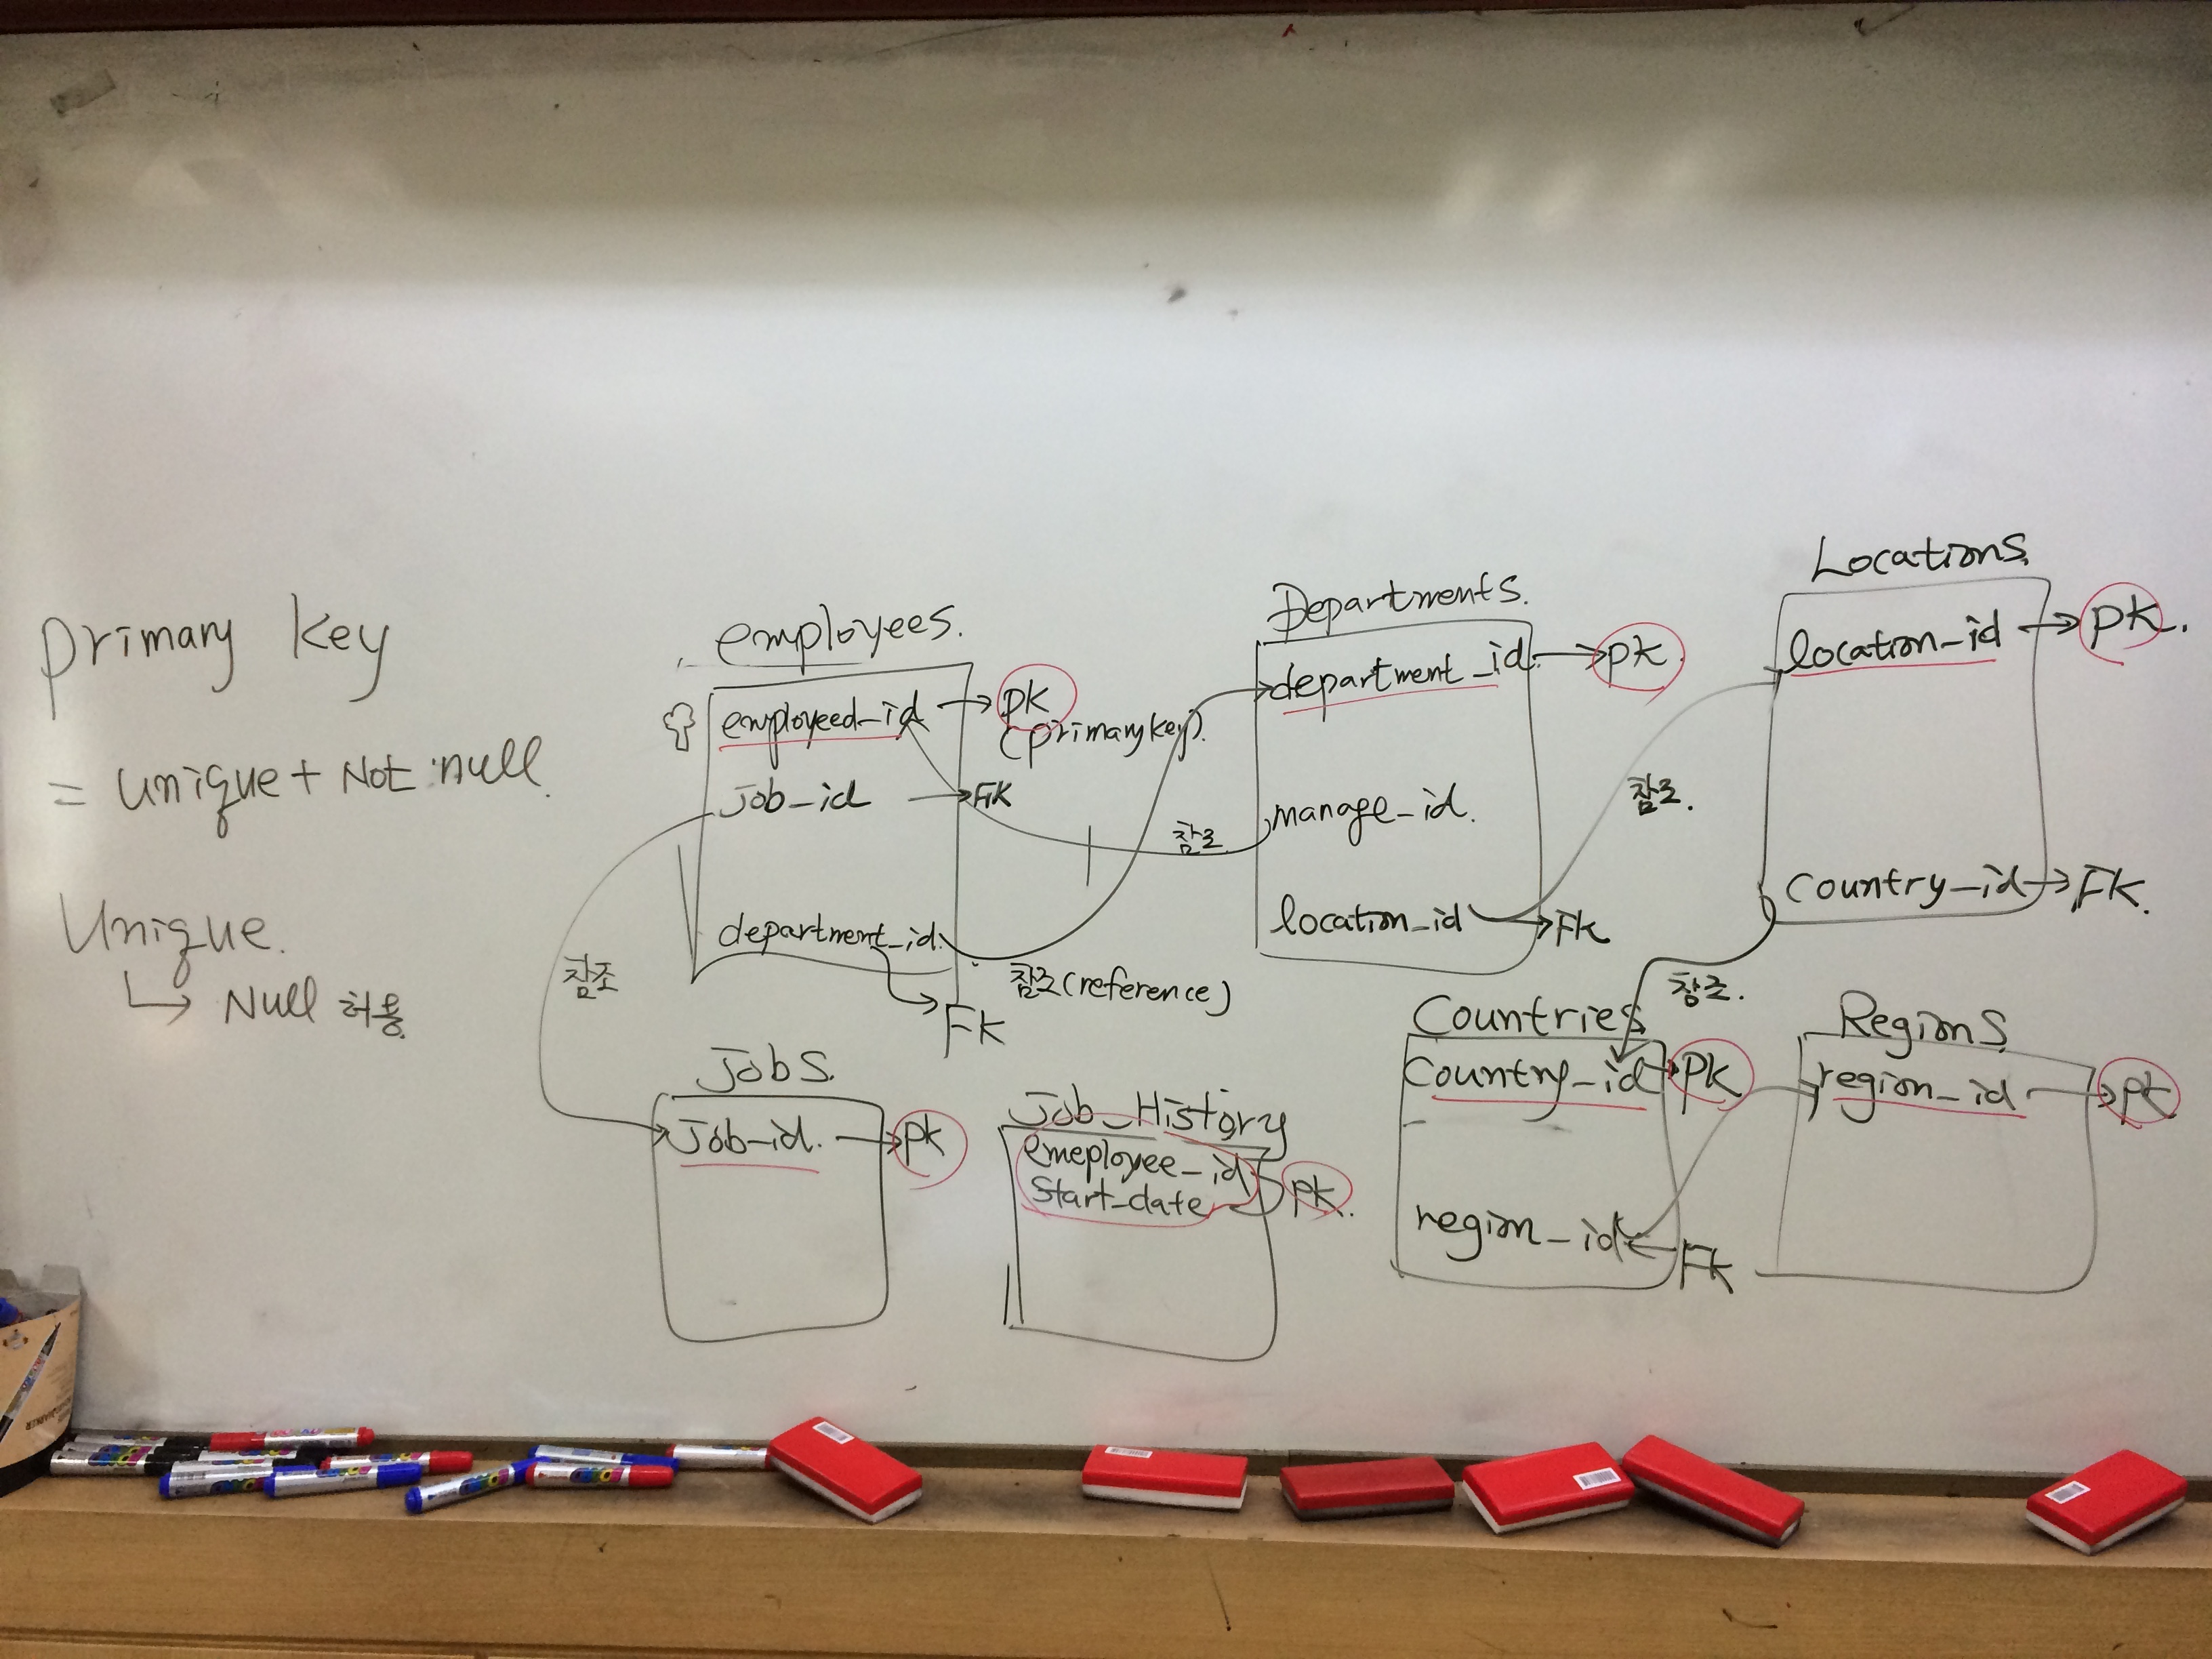 primary key
= unique + Not null.
Unique.
Null 허용
employees.
employeed_id → pk
(primary key).
Job_id → FK
department_id.
FK
참조
참조(reference)
Departments.
department_id. → pk.
manage_id.
참조
location_id → Fk
참조.
Locations.
location_id → pk.
Country_id → FK.
참조.
Jobs.
Job_id. → pk
Job_History
emeployee_id
Start_date
pk.
Countries
Country_id → PK
region_id ← Fk
Regions
region_id → pk